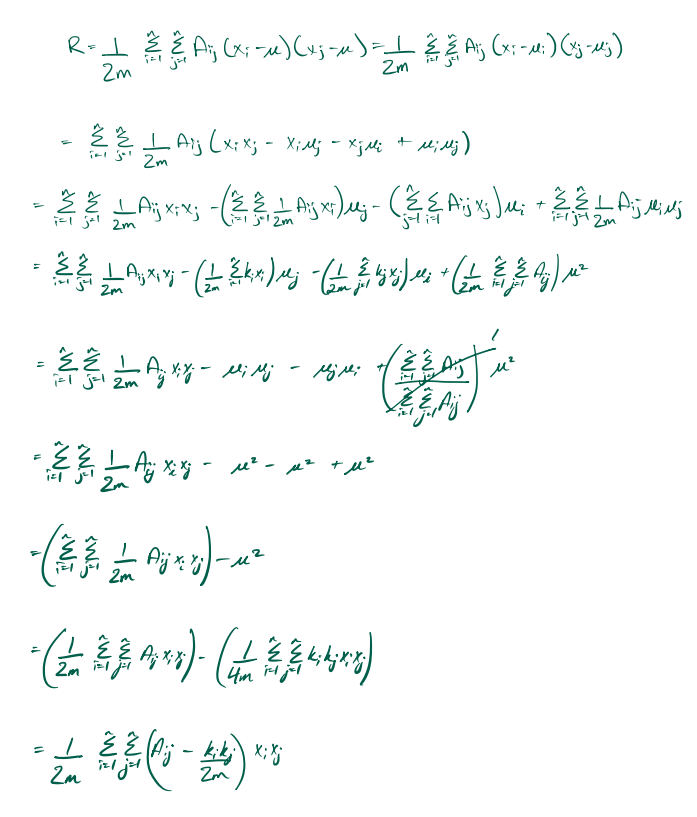 R = \frac{1}{2m} \sum_{i=1}^{n} \sum_{j=1}^{n} A_{ij} (x_i - \mu)(x_j - \mu) = \frac{1}{2m} \sum_{i=1}^{n} \sum_{j=1}^{n} A_{ij} (x_i - \mu_i)(x_j - \mu_j)
= \sum_{i=1}^{n} \sum_{j=1}^{n} \frac{1}{2m} A_{ij} (x_i x_j - x_i \mu_j - x_j \mu_i + \mu_i \mu_j)
= \sum_{i=1}^{n} \sum_{j=1}^{n} \frac{1}{2m} A_{ij} x_i x_j - (\sum_{i=1}^{n} \sum_{j=1}^{n} \frac{1}{2m} A_{ij} x_i) \mu_j - (\sum_{j=1}^{n} \sum_{i=1}^{n} A_{ij} x_j) \mu_i + \sum_{i=1}^{n} \sum_{j=1}^{n} \frac{1}{2m} A_{ij} \mu_i \mu_j
= \sum_{i=1}^{n} \sum_{j=1}^{n} \frac{1}{2m} A_{ij} x_i x_j - (\frac{1}{2m} \sum_{i=1}^{n} k_i x_i) \mu_j - (\frac{1}{2m} \sum_{j=1}^{n} k_j x_j) \mu_i + (\frac{1}{2m} \sum_{i=1}^{n} \sum_{j=1}^{n} A_{ij}) \mu^2
= \sum_{i=1}^{n} \sum_{j=1}^{n} \frac{1}{2m} A_{ij} x_i x_j - \mu_i \mu_j - \mu_j \mu_i + (\frac{\sum_{i=1}^{n} \sum_{j=1}^{n} A_{ij}}{\sum_{i=1}^{n} \sum_{j=1}^{n} A_{ij}})^1 \mu^2
= \sum_{i=1}^{n} \sum_{j=1}^{n} \frac{1}{2m} A_{ij} x_i x_j - \mu^2 - \mu^2 + \mu^2
= (\sum_{i=1}^{n} \sum_{j=1}^{n} \frac{1}{2m} A_{ij} x_i x_j) - \mu^2
= (\frac{1}{2m} \sum_{i=1}^{n} \sum_{j=1}^{n} A_{ij} x_i x_j) - (\frac{1}{4m} \sum_{i=1}^{n} \sum_{j=1}^{n} k_i k_j x_i x_j)
= \frac{1}{2m} \sum_{i=1}^{n} \sum_{j=1}^{n} (A_{ij} - \frac{k_i k_j}{2m}) x_i x_j